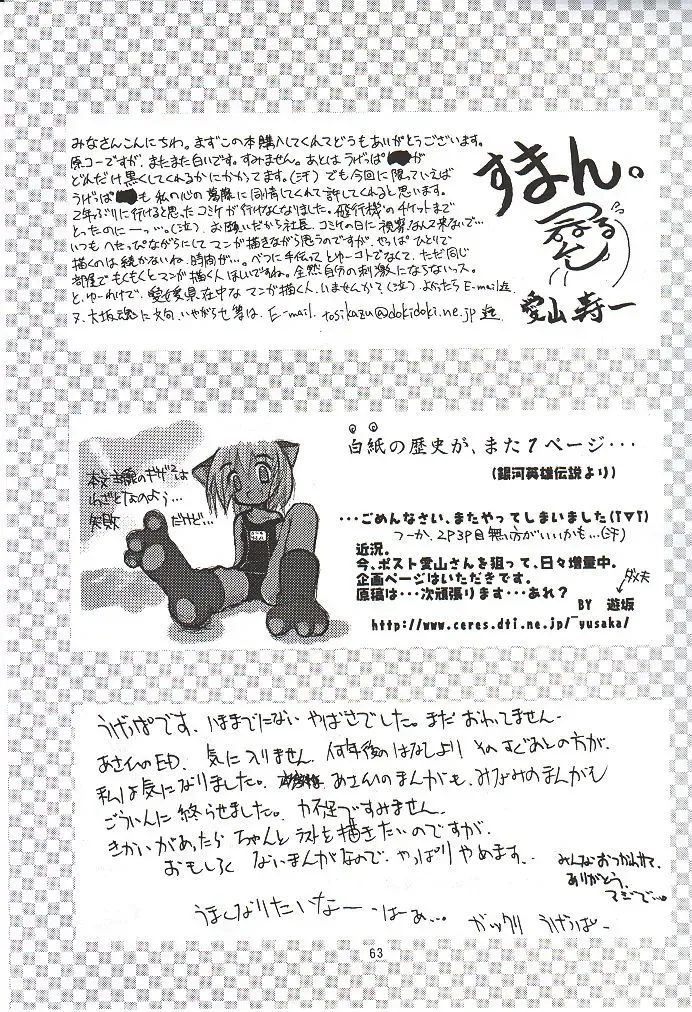 みなさんこんにちわ。まずこの本購入してくれてどうもありがとうございます。
原コーですが、またまた白いです。すみません。あとは うげっぱ が
どれだけ黒くしてくれるかにかかってます。(汗) でも今回に限っていえば
うげっぱ も 私の心の葛藤に同情してくれて許してくれると思います。
2年ぶりに行けると思ったコミケが行けなくなりました。飛行機のチケットまで
とったのにーっ…。(泣) お願いだから社長、コミケの日に視察なんて来ないで…
いつも へせっぴながらにして マンガ描きながら思うのですが、やっぱ ひとりで
描くのは続かないね、時間が…。べつに手伝って とゆーコトでなくて、ただ同じ
部屋でもくもくとマンガ描く人 ほしいですね。全然自分の刺激にならないっス。
と、ゆーわけで、愛媛県在中な マンガ描く人、いませんかて(泣) よかったら E-mail迄
又、大坂魂に文句、いやがらせ等は、E-mail. tosikazu@dokidoki.ne.jp 迄
すまん。
愛山 寿一
白紙の歴史が、また1ページ・・・
(銀河英雄伝説より)
本文主線のギザギザは
わざとなのよう…
失敗 だけど…
・・・ごめんなさい、またやってしまいました(T▽T)
つーか、2P3P目無い方がいいかも…(汗)
近況。
今、ポスト愛山さんを狙って、日々増量中。
企画ページはいただきです。
原稿は・・・次頑張ります・・・あれ？
ダメ夫
BY 遊坂
http://www.ceres.dti.ne.jp/~yusaka/
うげっぱです、いままでにない やばさでした。まだ おわってません-
あさんのED、気に入りません 何年後のはなしより そのすぐあとの方が、
私は気になりました。 あさんのまんがも、みなみのまんがも
ごういんに 終らせました。力不足ですみません。
きかいがあったら ちゃんと ラストを描きたいのですが、
おもしろく ないまんがなので、やっぱり やめます。
みんな おつかれさて、
ありがとう。
マジで…。
うまくなりたいなー はぁ…。 ガックリ うげっぱ-
63